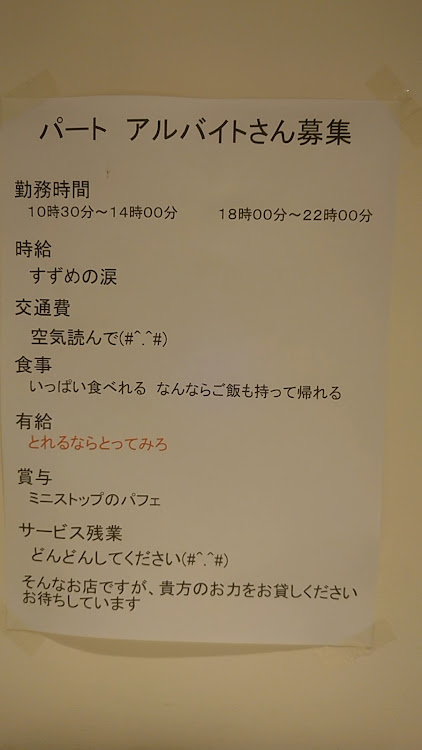 パート アルバイトさん募集
勤務時間
10時30分～14時00分 18時00分～22時00分
時給
すずめの涙
交通費
空気読んで(#^.^#)
食事
いっぱい食べれる なんならご飯も持って帰れる
有給
とれるならとってみろ
賞与
ミニストップのパフェ
サービス残業
どんどんしてください(#^.^#)
そんなお店ですが、貴方のお力をお貸しください
お待ちしています